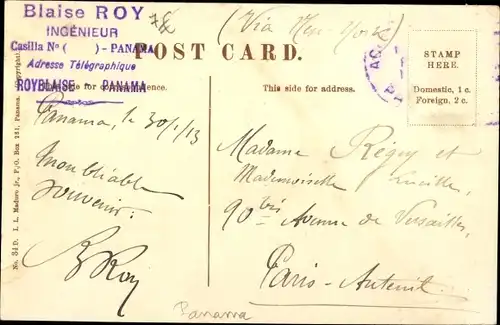 Blaise ROY
INGÉNIEUR
Casilla Nº ( ) - PANAMA
Adresse Télégraphique
ROYBLAISE PANAMA
(Via New-York)
POST CARD.
side for correspondence.
This side for address.
STAMP
HERE.
Domestic, 1 c.
Foreign, 2 c.
Panama, le 30/1/13
Inoubliable
souvenir.
B Roy
Madame Régey et
Mademoiselle Lucille,
90 bis Avenue de Versailles,
Paris-Auteuil.
Panama
No. 34D. I. L. Maduro jr., P.O. Box 121, Panama. Copyright